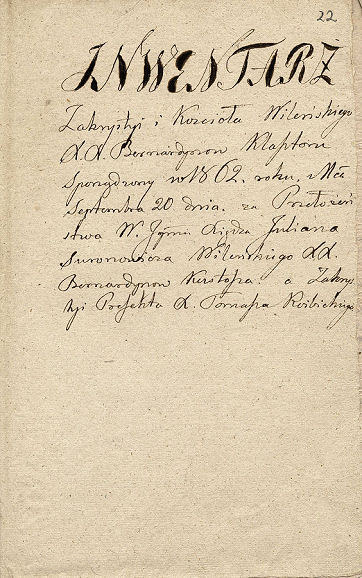 22
INWENTARZ
Zakrystyi i Kościoła Wileńskiego
X.X. Bernardynow Klasztoru
Sporządzony w 1862. roku, Mca
Septembra 20. dnia. za Przełożeń
stwa W. Jmci Xiędza Juliana
Wileńskiego XX.
Bernardynow Kustosza. a Zakry
tyi Prefekta X. Tomasza